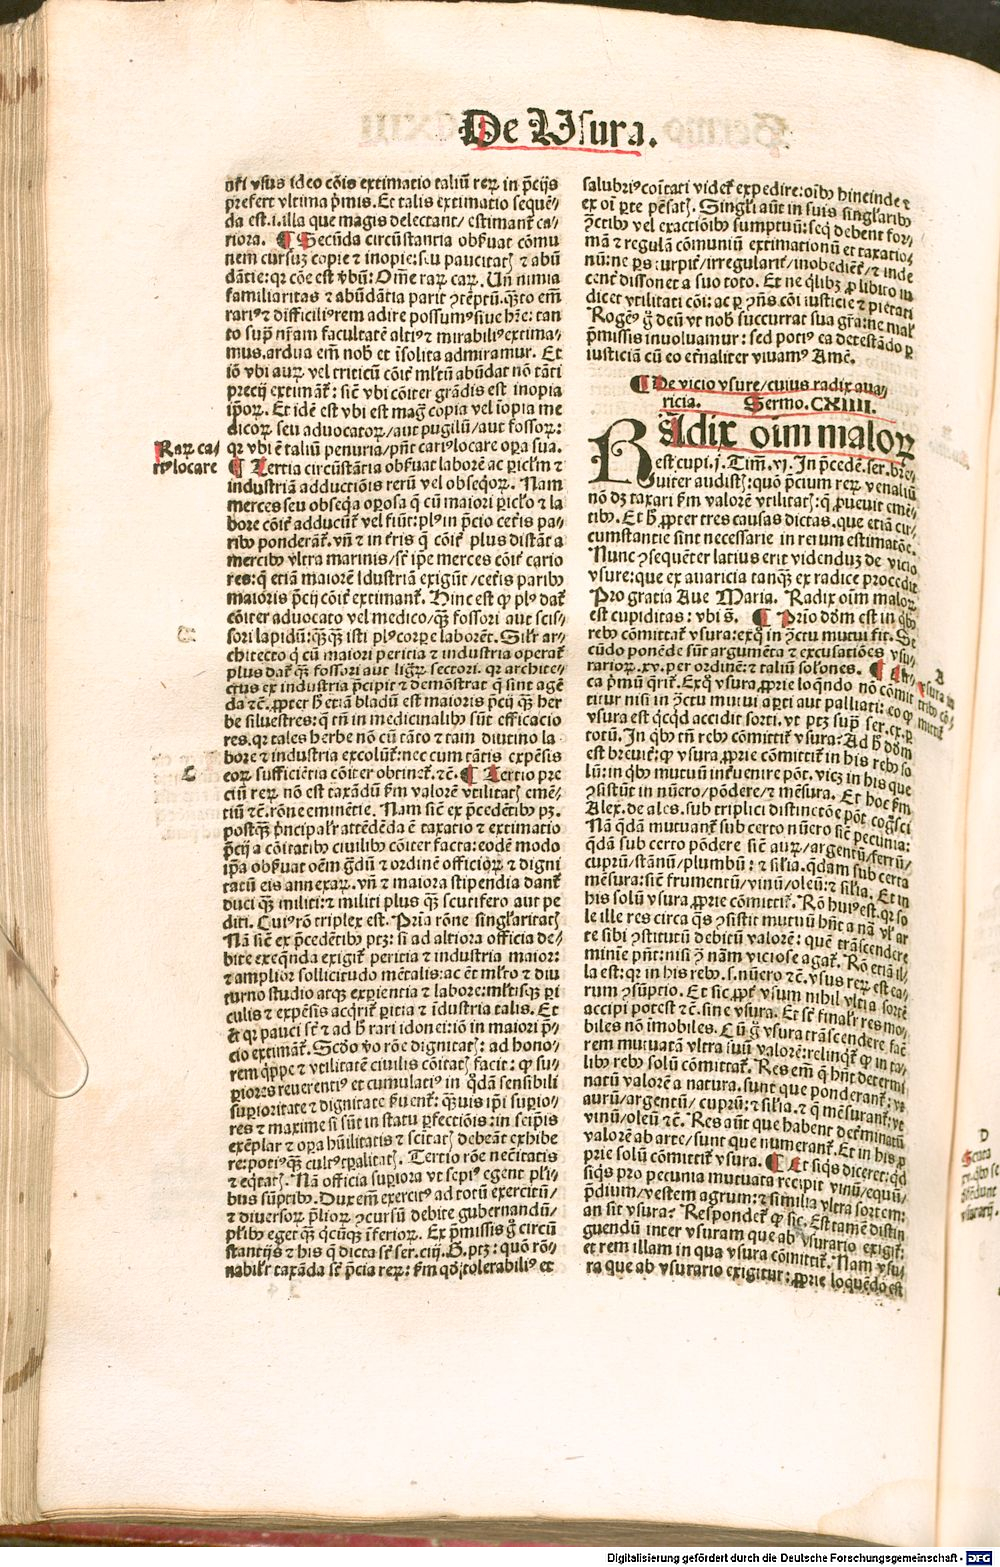 De Usura.
nr̄i vsus ideo cōis extimatio taliū reꝝ in p̄cijs
prefert vltima p̄mis. Et talis extimatio sequē-
da est .i. illa que magis delectant/ estimant᷑ ca-
riora. ¶ Secūda circūstantia obẜuat cōmu
nem cursuꝫ copie ⁊ inopie: seu paucitatꝭ ⁊ abū
dātie: qꝛ cōe est ꝟbū: Om̄e raꝝ caꝝ. Un̄ nimia
familiaritas ⁊ abūdātia parit ↄtēptū. q̄ꝫto em̄
rariꝰ ⁊ difficiliꝰ rem adire possumꝰ siue h̄re: tan-
to sup̄ nr̄am facultatē altiꝰ ⁊ mirabiliꝰ extima-
mus. ardua em̄ nob̄ et īsolita admiramur. Et
iō vbi auꝝ vel triticū cōit᷑ ml̄tū abūdat nō tāti
precij extimāt᷑: sic̄ vbi cōiter grādis est inopia
ip̄oꝝ. Et idē est vbi est maḡ copia vel īopia me
dicoꝝ seu aduocatoꝝ/ aut pugilū/ aut fossoꝝ:
qꝛ vbi ē taliū penuria/ pn̄t cariꝰ locare oꝑa sua.
Raꝝ ca-
riꝰ locare
¶ Tertia circūstātia obẜuat laborē ac ꝑicl'm ⁊
industriā adductiōis rerū vel obseqoꝝ. Nam
merces seu obseqa oꝑosa q̄ cū maiori ꝑicl'o ⁊ la
bore cōit᷑ adducūt᷑ vel fiūt: plꝰ in p̄cio cet̄is pa-
ribꝰ ponderāt᷑. vn̄ ⁊ in tr̄is q̄ cōit᷑ plus distāt a
mercibꝰ vltra marinis/ sūt ip̄e merces cōit᷑ cario
res: q̄ etiā maiorē īdustriā exigūt/ cet̄is paribꝰ
maioris p̄cij cōit᷑ extimant᷑. Hinc est ꝙ plꝰ dat᷑
cōiter aduocato vel medico/ q̄ꝫ fossori aut scis-
sori lapidū: q̄ꝫq̄ꝫ isti plꝰ corꝑe laborēt. Sil'r ar-
chitecto q̄ cū maiori peritia ⁊ industria operat᷑
plus dat᷑ q̄ꝫ fossori aut lignꝝ sectori. qꝛ archite-
ctus ex industria p̄cipit ⁊ demōstrat q̄ sint agē
da ⁊c̄. ꝓpter h̄ etiā bladū est maioris p̄cij q̄ꝫ her
be siluestres: q̄ tn̄ in medicinalibꝰ sūt efficacio
res. qꝛ tales herbe nō cū tāto ⁊ tam diutino la
bore ⁊ industria excolūt᷑: nec cum tātis expēsis
eoꝝ sufficiētia cōiter obtinet᷑. ⁊c̄. ¶ Tertio pre
C
ciū reꝝ nō est taxādū ẜm valorē vtilitatꝭ emē-
tiū ⁊c̄. rōne eminētie. Nam sic̄ ex p̄cedētibꝰ pꝫ.
postq̄ꝫ p̄ncipal'r attēdēda ē taxatio ⁊ extimatio
p̄cij a cōitatibꝰ ciuilibꝰ cōiter facta: eodē modo
ip̄a obẜuat oēm gᷓdū ⁊ ordinē officioꝝ ⁊ digni
tatū eis annexaꝝ. vn̄ ⁊ maiora stipendia dant᷑
duci q̄ꝫ militi: ⁊ militi plus q̄ꝫ scutifero aut pe
diti. Cuiꝰ rō triplex est. Pr̄ia rōne singl'aritatꝭ
Nā sic̄ ex p̄cedētibꝰ ptꝫ: si ad altiora officia de-
bite exeq̄nda exigit᷑ peritia ⁊ industria maior:
⁊ amplior sollicitudo mētalis: ac ēt ml'to ⁊ diu
turno studio atqꝫ exꝑientia ⁊ labore: ml'tisqꝫ ꝑi
culis ⁊ expēsis acq̄rit᷑ ꝑitia ⁊ īdustria talis. Et
⁊ qꝛ pauci sūt ⁊ ad h̄ rari idonei: iō in maiori p̄-
cio extimāt᷑. Scd̄o ꝟo rōne dignitatꝭ: ad hono-
rem q̄ppe ⁊ vtilitatē ciuilis cōitatꝭ facit: ꝙ su-
ꝑiores reuerentiꝰ et cumulatiꝰ in q̄dā sensibili
suꝑioritate ⁊ dignitate ẜuent᷑: q̄ꝫuis ip̄i suꝑio-
res ⁊ maxime si sūt in statu ꝑfectiōis: in seip̄is
exēplar ⁊ oꝑa hūilitatis ⁊ sc̄itatꝭ debeāt exhibe
re: potiꝰ q̄ꝫ cultꝰ tꝑalitatꝭ. Tertio rōe nec̄itatis
⁊ eq̄tatꝭ. Nā officia suꝑiora vt sepiꝰ egent pl'i-
bus sūptibꝰ. Dux em̄ exercitꝰ ad totū exercitū/
⁊ diuersoꝝ p̄lioꝝ ↄcursū debite gubernandū/
pl'ibꝰ eget q̄ꝫ q̄cūqꝫ īferioꝝ. Ex p̄missis gͦ circū
stantijs ⁊ his q̄ dicta sūt ser. ciij. G. ptꝫ: quō rō-
nabil'r taxāda sūt p̄cia reꝝ: ẜm qd̄ tolerabiliꝰ et
salubriꝰ cōitati videt᷑ expedire: oībꝰ hincinde ⁊
ex oī ꝑte pēsatꝭ. Singl'i aūt in suis singl'aribꝰ
ↄ̄ctibꝰ vel exactiōibꝰ sumptuū: seq̄ debent for-
mā ⁊ regulā cōmuniū extimationū et taxatio-
nū: ne ꝑs turpit᷑/ irregularit᷑/ inobediēt᷑/ ⁊ inde
cent᷑ dissonet a suo toto. Et ne q̄libꝫ ꝓ libito iu
dicet vtilitati cōi: ac ꝑ ↄn̄s cōi iusticie ⁊ pietati
Rogēꝰ gͦ deū vt nob̄ succurrat sua gr̄a: ne mal'
p̄missis inuoluamur: sed potiꝰ ea detestādo ꝑ
iusticiā cū eo et̄naliter viuamꝰ Amē.
¶ De vicio vsure/ cuius radix aua-
ricia. Sermo. CXIIII.
RAdix oīm maloꝝ
est cupi. j. Tim̄. vj. In p̄cedē. ser. bre-
uiter audistꝭ: quō p̄cium reꝝ venaliū
nō dꝫ taxari ẜm valorē vtilitatꝭ: q̄ ꝓuenit emē-
tibꝰ. Et h̄ ꝓpter tres causas dictas. que etiā cir-
cumstantie sint necessarie in rerum estimatōe.
Nunc ↄsequēter latius erit videnduꝫ de vicio
vsure: que ex auaricia tanq̄ꝫ ex radice procedit
Pro gratia Aue Maria. Radix oīm maloꝝ
est cupiditas: vbi s̄. ¶ Prīo dōm est in q̄bꝰ
rebꝰ cōmittat᷑ vsura: exqͦ in ↄ̄ctu mutui fit. Se
cūdo ponēde sūt argumēta ⁊ excusatiōes vsu-
rarioꝝ .xv. per ordinē: ⁊ taliū sol'ones. ¶ Cir-
A
Vsura in
ca p̄mū q̄rit᷑. Exqͦ vsura ꝓprie loq̄ndo nō cōmit
titur nisi in ↄ̄ctu mutui aꝑti aut palliati: eo ꝙ
vsura est qcqd accidit sorti. vt ptꝫ sup̄ ser. cx. ꝑ
totū. In qͥbꝰ tn̄ rebꝰ cōmittit᷑ vsura? Ad h̄ dōm
est breuit᷑: ꝙ vsura ꝓprie cōmittit᷑ in his rebꝰ so
lū: in qͥbꝰ mutuū inꝟuenire pōt. vicꝫ in his que
ↄsistūt in nūero/ pōdere/ ⁊ mēsura. Et hoc ẜm
Alex. de ales. sub triplici distinctōe pōt cogͦsci
Nā q̄dā mutuant᷑ sub certo nūero sic̄ pecunia:
q̄dā sub certo pōdere sic̄ auꝝ/ argentū/ ferrū/
cuprū/ stānū/ plumbū: ⁊ sil'ia. q̄dam sub certa
mēsura: sic̄ frumentū/ vinū/ oleū: ⁊ sil'ia. Et in
his solū vsura ꝓprie cōmittit᷑. Rō huiꝰ est. qꝛ so
le ille res circa q̄s ↄsistit mutuū hn̄t a nā vl' ar
te sibi ↄstitutū debitū valorē: quē trāscendere
minie pn̄t: nisi ↄ̄ nām viciose agat᷑. Rō etiā il-
la est: qꝛ in his rebꝰ .s. nūero ⁊c̄. vsus reꝝ est ea-
rum ↄsūptio. Et sic ꝓpt᷑ vsum nihil vltra sortē
accipi potest ⁊c̄. sine vsura. Et sūt final'r res mo-
biles nō īmobiles. Cū gͦ vsura trāscendere faē
rem mutuatā vltra suū valorē: relinqͥt᷑ ꝙ in ta-
libꝰ rebꝰ solū cōmittat᷑. Res em̄ q̄ hn̄t determi
natū valorē a natura. sunt que ponderant᷑: vt
aurū/ argentū/ cuprū: ⁊ sil'ia. ⁊ q̄ mēsurant᷑: vt
vinū/ oleū ⁊c̄. Res aūt que habent det᷑minatū
valorē ab arte/ sunt que numerant᷑. Et in his ꝓ
prie solū cōmittit᷑ vsura. ¶ Et siqͥs diceret: qd̄
siqͥs pro pecunia mutuata recipit vinū/ equū/
p̄dium/ vestem agrum: ⁊ similia vltra sortem:
an sit vsura? Respondet᷑ ꝙ sic. Est tamē distin
guendū inter vsuram que ab vsurario exigit᷑:
et rem illam in qua vsura cōmittit᷑. Nam vsu-
ra que ab vsurario exigitur: ꝓprie loquēdo est
D
Digitalisierung gefördert durch die Deutsche Forschungsgemeinschaft - DFG